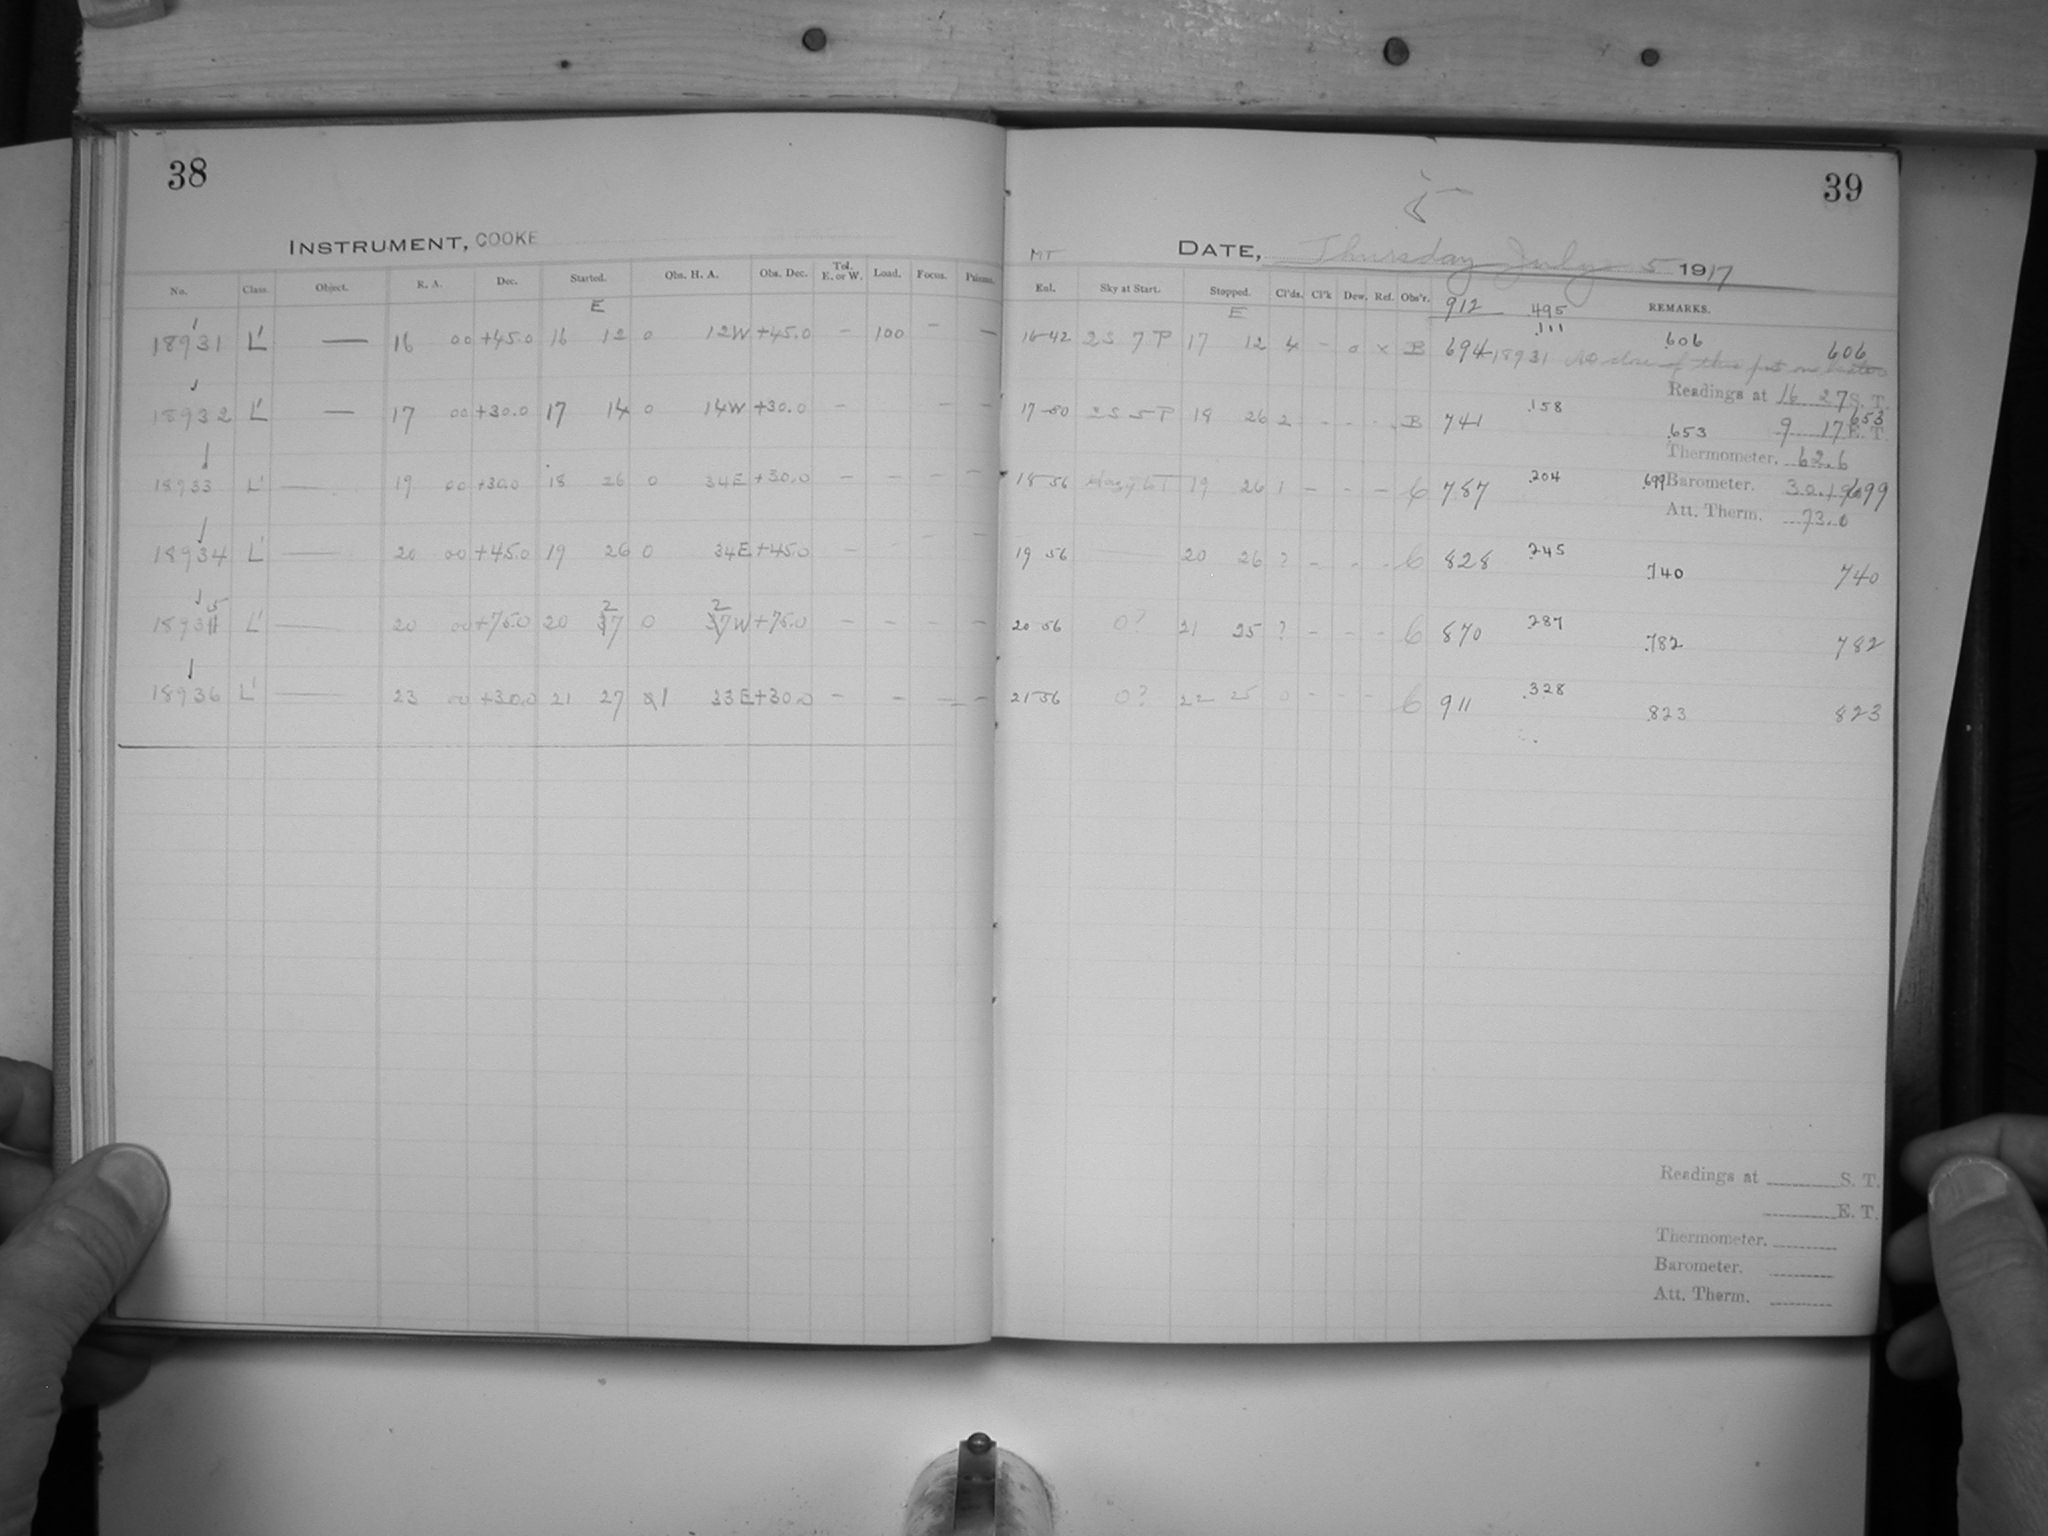 38
INSTRUMENT, COOKE
No. Class. Object. R. A. Dec. Started. Obs. H. A. Obs. Dec. Tel. E. or W. Load. Focus. 
E
18931 L' — 16 00 +45.0 16 12 0 12W +45.0 - 100 - -
18932 L' — 17 00 +30.0 17 14 0 14W +30.0 - - -
18933 L' — 19 00 +30.0 18 26 0 34E +30.0 - - - -
18934 L' — 20 00 +45.0 19 26 0 34E +45.0 - - - -
18935 L' — 20 00 +75.0 20 27 0 27W +75.0 - - - -
18936 L' — 23 00 +30.0 21 27 1 33E +30.0 - - - -
39
5
MT DATE, Thursday July 5 1917
Sky at Start. Stopped. Cl'ds. Cl'k Dew. Ref. Obs'r. REMARKS.
E 912 .495
16-42 2S 7P 17 12 4 - 0 x B 694 .111 .606 606
18931 of this
Readings at 16 27 S. T.
17-50 2S 5P 18 26 2 - - - B 741 .158 .653 653
9 17 E. T.
Thermometer. 62.6
18-56 Hazy 19 26 1 - - - 6 787 .204 .699 699
Barometer. 30.19
Att. Therm. 73.0
19 56 — 20 26 ? - - - 6 828 .245 .740 740
20 56 0? 21 25 ? - - - 6 870 .287 .782 782
21-56 0? 22 25 0 - - - 6 911 .328 .823 823
Readings at S. T.
E. T.
Thermometer.
Barometer.
Att. Therm.